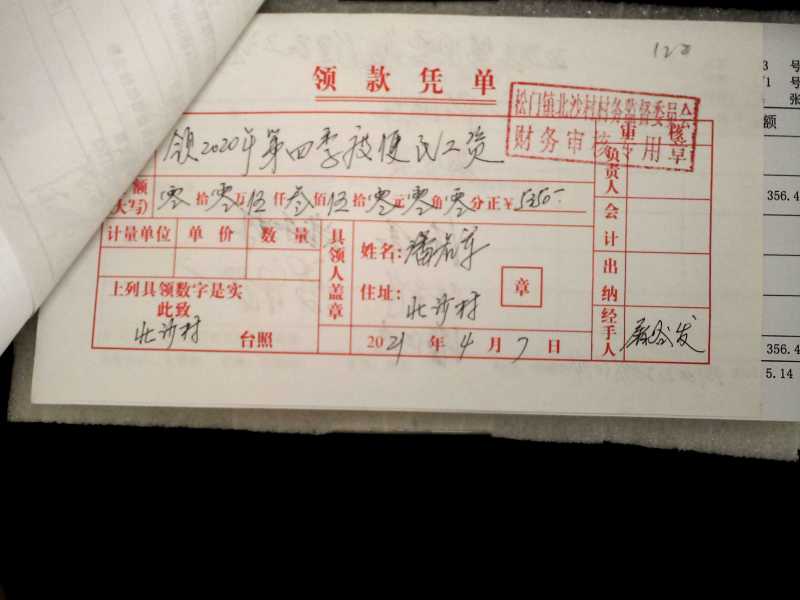 120
领款凭单
松门镇北沙村村务监督委员会
财务审核专用章
领2020年第四季度便民工资
额
大写) 零拾零万伍仟叁佰伍拾零元零角零分正¥5350-
负责人
会计
出纳
经手人
计量单位 单价 数量
具领人盖章
姓名:
住址: 北沙村
章
上列具领数字是实
此致
北沙村 台照
2021年4月7日
3 号
1 号
张
额
356.4
356.4
5.14